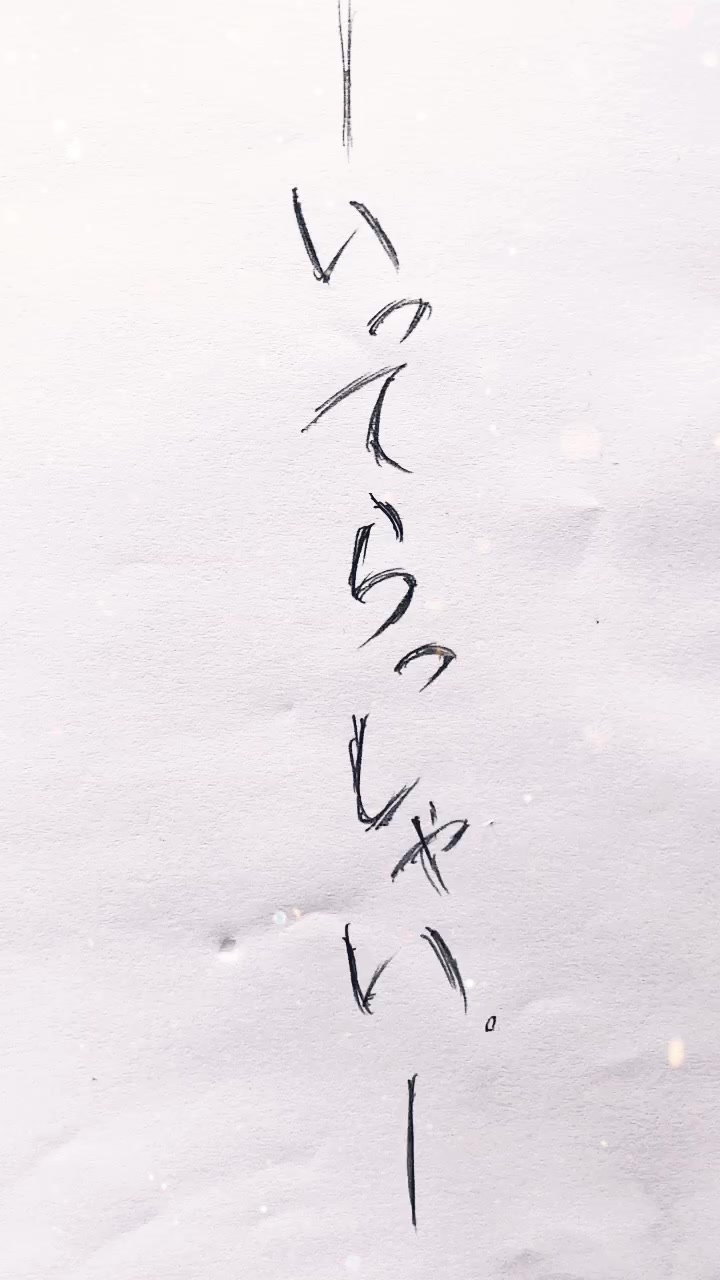 ―いってらっしゃい。―